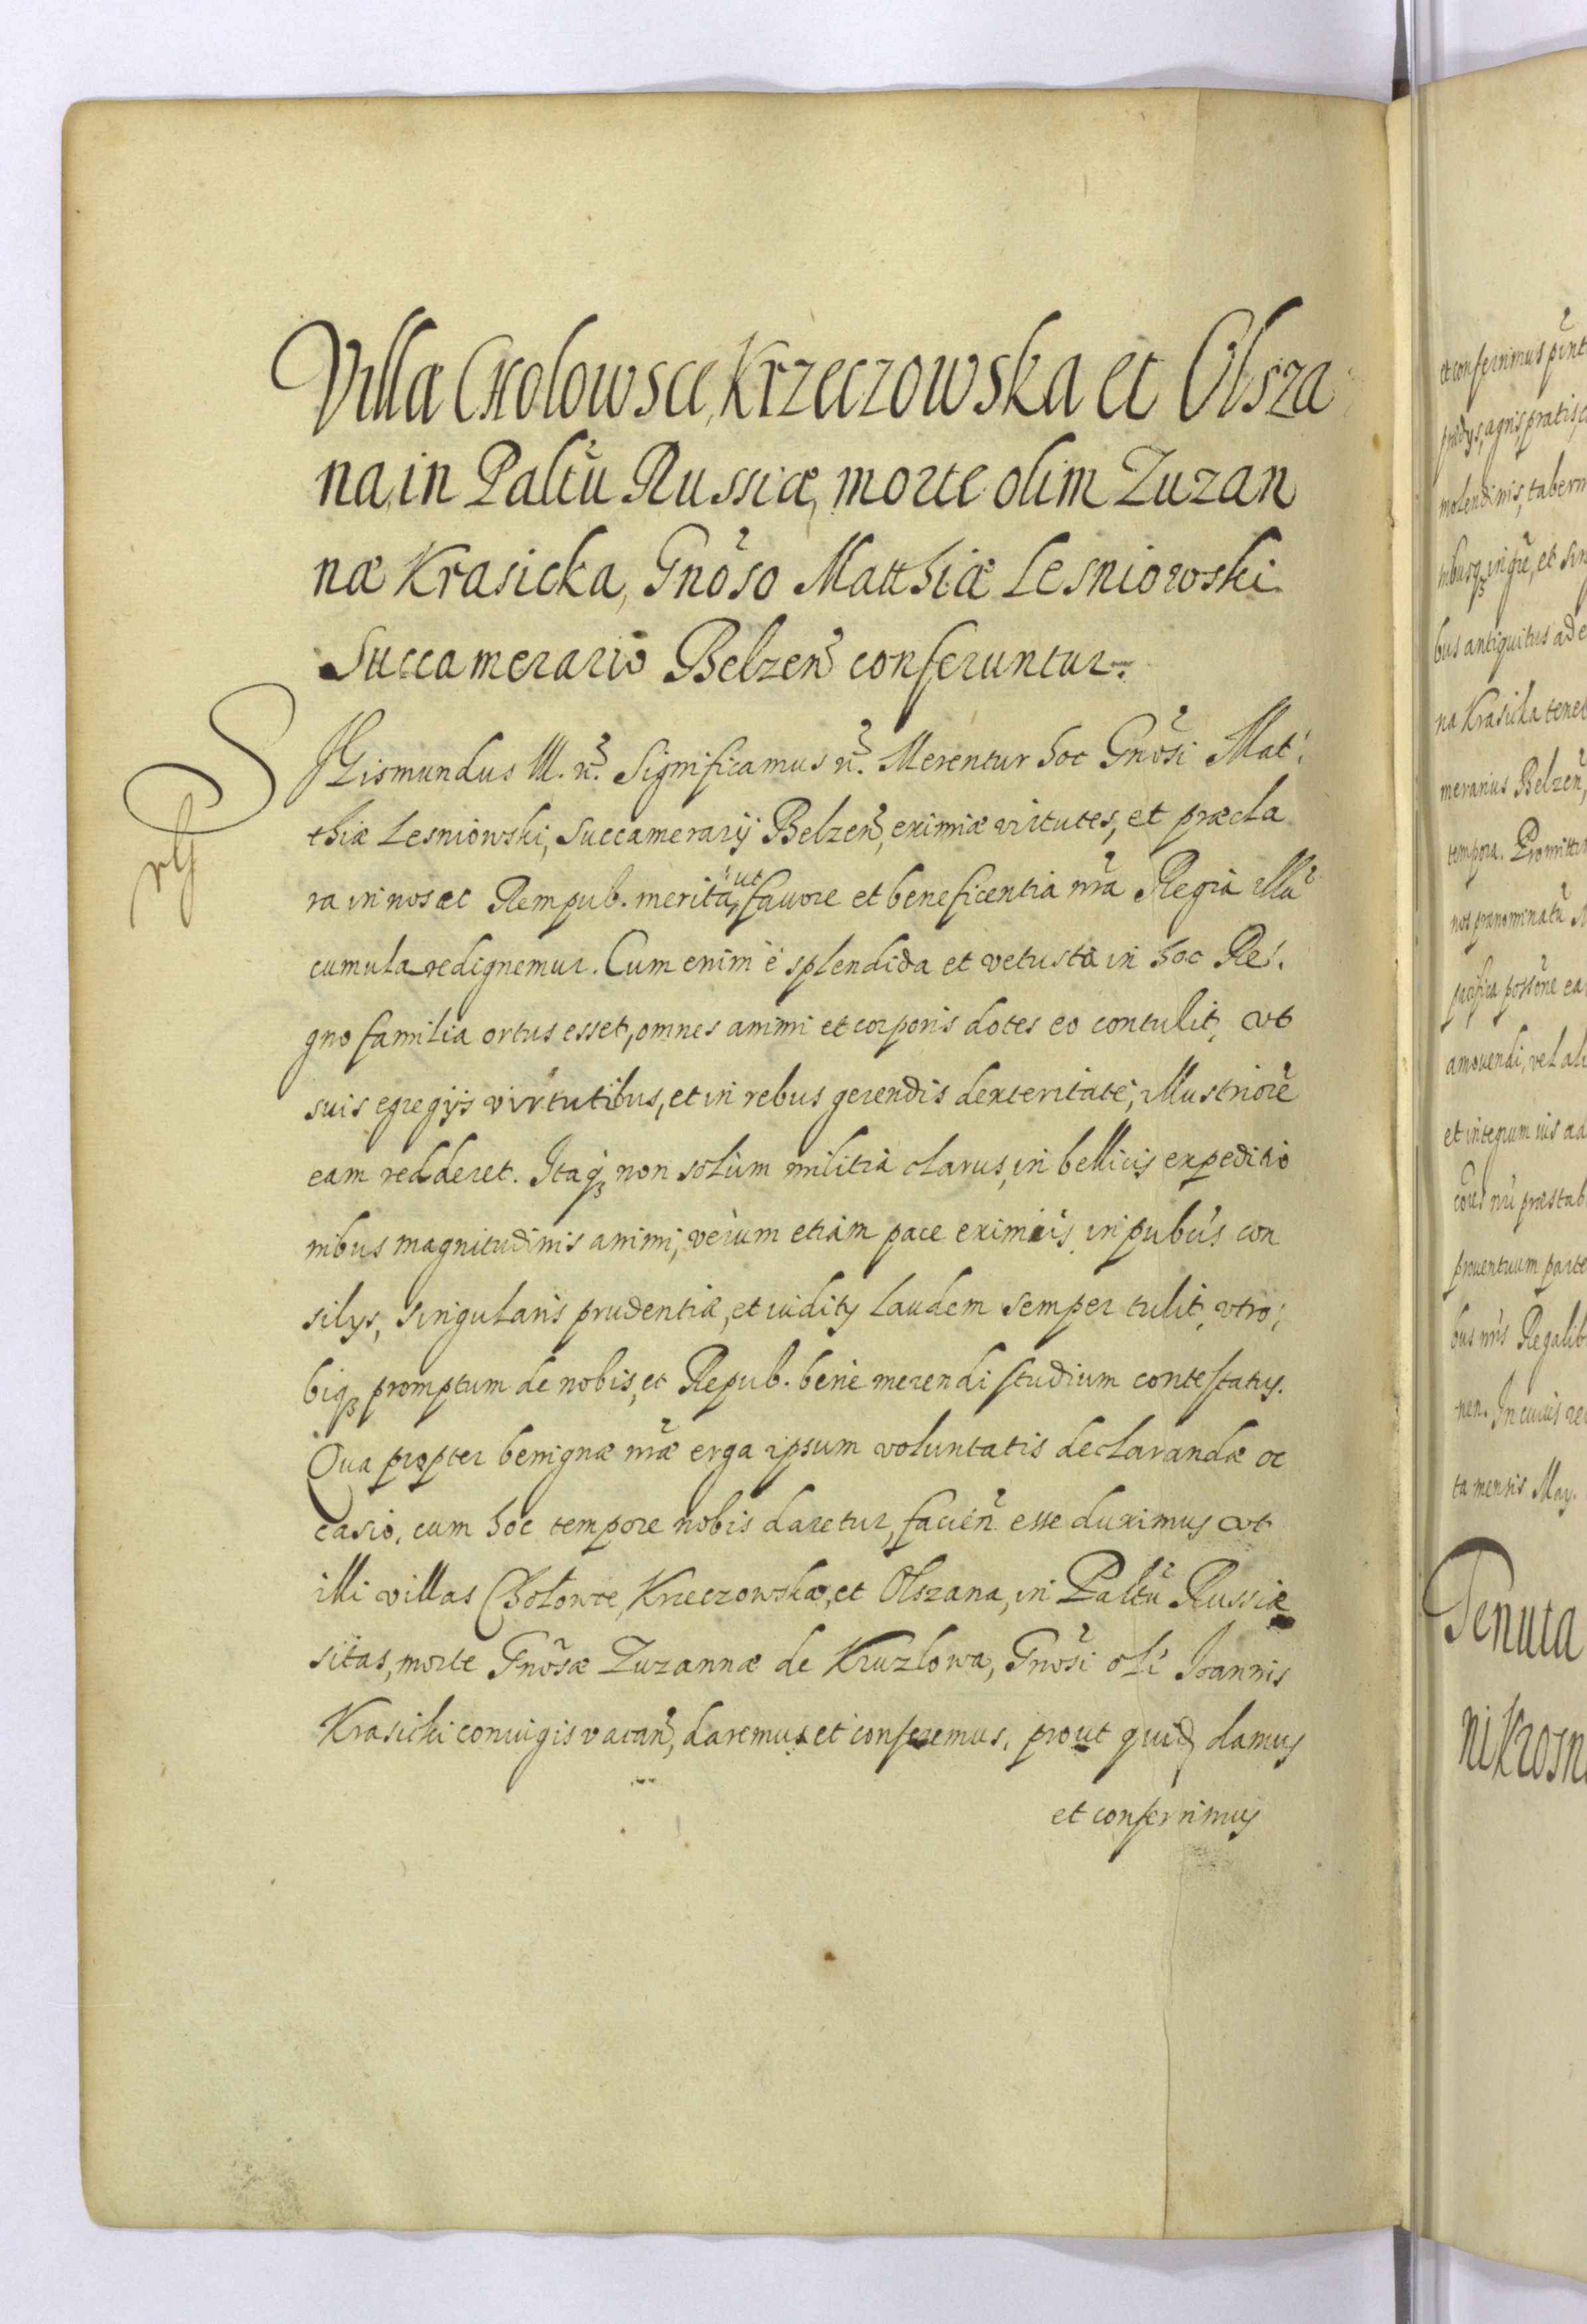 Villæ Cholowsce, Krzeczowska et Olsza
na, in Palтũ Russiæ, morte olim Zuzan
næ Krasicka, Gnõso Matthiæ Lesniowski
Succamerario Belzeñ conferuntur.
SIgismundus III. &c. Significamus &c. Merentur hoc Gnõsi Mat:
thiæ Lesniowski, Succamerarij Belzeñ, eximiæ virtutes, et præcla
ra in nos ac Rempub. merita, ut fauore et beneficentia nr̃a Regia illũ
cumulare dignemur. Cum enim è splendida et vetusta in hoc Re:
gno familia ortus esset, omnes animi et corporis dotes eo contulit, ut
suis egregijs virtutibus, et in rebus gerendis dexteritate, illustriorẽ
eam redderet. Itaq3 non solùm militia clarus, in bellicis expeditio
nibus magnitudinis animi, verum etiam pace eximius, in pubcis con
silys, singularis prudentiæ, et iudity laudem semper tulit, vtro:
biq3 promptum de nobis, et Repub. bene merendi studium contestatus.
Qua propter benignæ nr̃æ erga ipsum voluntatis declarandæ oc
casio, cum hoc tempore nobis daretur, facieñ esse duximus ut
illi villas Chołowce, Krzeczowska, et Olszana, in Paltũ Russiæ
sitas, morte Gnõsæ Zuzannæ de Kruzlowa, Gnõsi oli Joannis
Krasicki coniugis vacañ, daremus et conferemus, prout quid damus
et conferimus
et conferimus
prædys, agris, pratis
molendinis, tabern
nibusq3 in gñe, et sin
bus antiquitus ad e
na Krasicka tene
merarius Belzeñ,
tempora. Promitti
nos prænominatũ M
pacifica possõne ea
amouendi, vel ali
et integrum ius ad
præstab
prouentuum parte
bus nr̃is Regalib
nen. In cuius re
ta mensis May.
Tenuta
ni Krosn